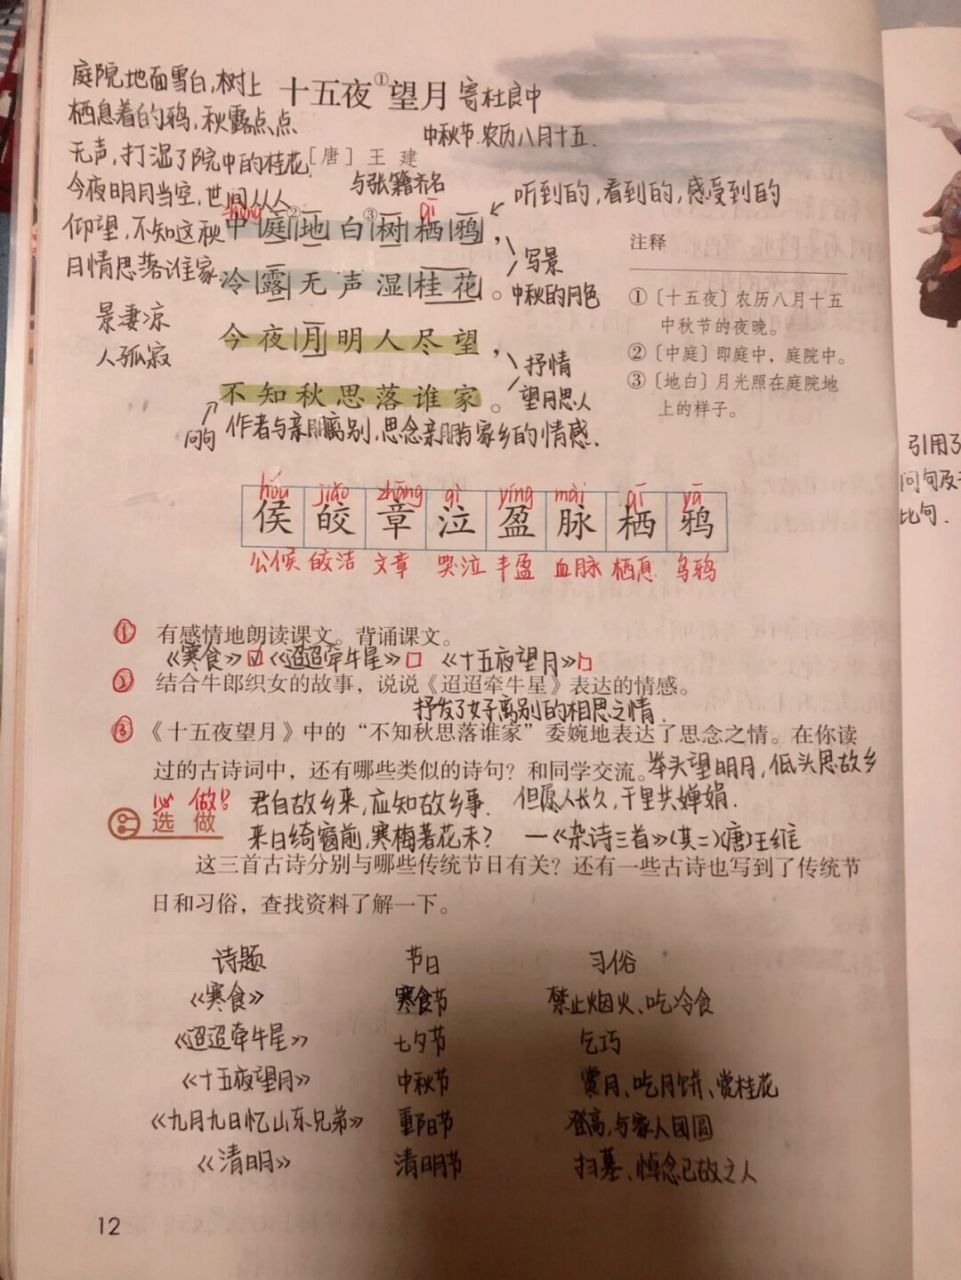 庭院地面雪白,树上
栖息着的鸦,秋露点点
无声,打湿了院中的桂花
今夜明月当空,世间人人
仰望,不知这秋
日情思落谁家
十五夜①望月 寄杜良中
中秋节.农历八月十五.
[唐] 王 建
与张籍齐名
听到的,看到的,感受到的
zhōng qī
中庭②地白③树栖鸦,
冷露无声湿桂花。
写景
中秋的月色
景凄凉
人孤寂
今夜月明人尽望,
不知秋思落谁家。
抒情
望月思人
问句
作者与亲朋离别,思念亲朋与家乡的情感.
注释
①〔十五夜〕农历八月十五
中秋节的夜晚。
②〔中庭〕即庭中,庭院中。
③〔地白〕月光照在庭院地
上的样子。
引用了
问句及
比句.
hóu jiǎo zhāng qì yíng mài qī yā
侯 皎 章 泣 盈 脉 栖 鸦
公候 皎洁 文章 哭泣 丰盈 血脉 栖息 乌鸦
① 有感情地朗读课文。背诵课文。
《寒食》☑《迢迢牵牛星》□ 《十五夜望月》□
② 结合牛郎织女的故事,说说《迢迢牵牛星》表达的情感。
抒发了女子离别的相思之情.
③ 《十五夜望月》中的“不知秋思落谁家”委婉地表达了思念之情。在你读
过的古诗词中,还有哪些类似的诗句?和同学交流。举头望明月,低头思故乡
做! 君自故乡来,应知故乡事. 但愿人长久,千里共婵娟.
选 做 来日绮窗前,寒梅著花未? —《杂诗三首》(其二)(唐)王维
这三首古诗分别与哪些传统节日有关?还有一些古诗也写到了传统节
日和习俗,查找资料了解一下。
诗题 节日 习俗
《寒食》 寒食节 禁止烟火、吃冷食
《迢迢牵牛星》 七夕节 乞巧
《十五夜望月》 中秋节 赏月、吃月饼、赏桂花
《九月九日忆山东兄弟》 重阳节 登高,与家人团圆
《清明》 清明节 扫墓、悼念已故之人
12